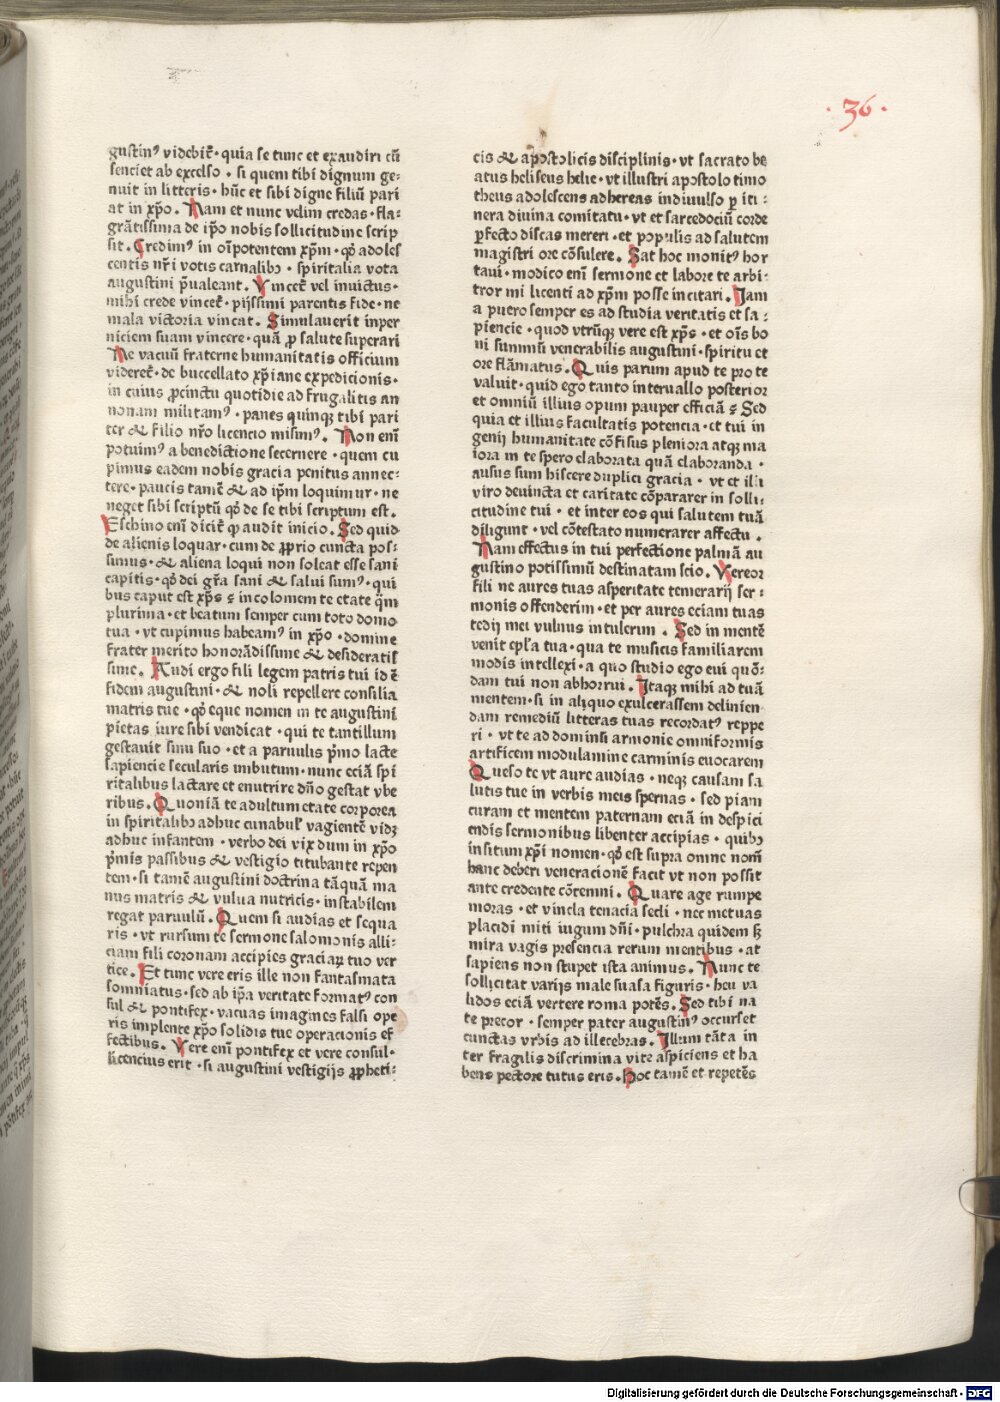 · 36 ·
gustinꝰ videbit̄· quia se tunc et exaudiri cū
senciet ab excelso · si quem tibi dignum ge⸗
nuit in litteris · hūc et sibi digne filiū pari
at in xp̄o . Nam et nunc velim credas · fla⸗
grātissima de ip̄o nobis sollicitudine scrip
sit . Credimꝰ in oīpotentem xp̄m · qđ adoles
centis nr̄i votis carnalibꝫ · spiritalia vota
augustini p̄ualeant . Vincet vel inuictus ·
mihi crede vincet · pijssimi parentis fide · ne
mala victoria vincat . Simulauerit in per
niciem suam vincere · quā ꝓ salute superari
Ne vacuū fraterne humanitatis officium
videret · de buccellato xp̄iane expedicionis ·
in cuius ꝓcinctu quotidie ad frugalitis an
nonam militamꝰ · panes quinqꝫ tibi pari
ter & filio nr̄o licencio misimꝰ . Non enī
potuimꝰ a benedictione secernere · quem cu
pimus eadem nobis gracia penitus annec⸗
tere · paucis tamē & ad ip̄m loquimur · ne
neget sibi scriptū qđ de se tibi scriptum est .
Eschino enī dicit̄ ꝙ audit inicio . Sed quid
de alienis loquar · cum de ꝓprio cuncta pos⸗
simus · & aliena loqui non solcat esse sani
capitis · qđ dei gr̄a sani & salui sumꝰ · qui
bus caput est xp̄s ⹎ incolomem te etate q̄m
plurima · et beatum semper cum toto domo
tua · vt cupimus habeamꝰ in xp̄o · domine
frater merito honorādissime & desideratis
sime . Audi ergo fili legem patris tui id ē
fidem augustini · & noli repellere consilia
matris tue · qđ eque nomen in te augustini
pietas iure sibi vendicat · qui te tantillum
gestauit sinu suo · et a paruulis p̄mo lacte
sapiencie secularis imbutum · nunc eciā spi
ritalibus lactare et enutrire dn̄o gestat vbe
ribus . Quoniā te adultum etate corporea
in spiritalibꝫ adhuc cunabulꝭ vagientē vidꝫ
adhuc infantem · verbo dei vix dum in xp̄o
p̄mis passibus & vestigio titubante repen
tem · si tamē augustini doctrina tāquā ma
nus matris & vulua nutricis · instabilem
regat paruulū . Quem si audias et sequa
ris · vt rursum te sermone salomonis alli⸗
ciam fili coronam accipies graciaꝝ tuo ver
tice . Et tunc vere eris ille non fantasmata
somniatus · sed ab ip̄a veritate formatꝰ con
sul & pontifex · vacuas imagines falsi ope
ris implente xp̄o solidis tue operacionis ef
fectibus . Vere enī pontifex et vere consul ·
licencius erit · si augustini vestigijs ꝓpheti⸗
cis & apostolicis disciplinis · vt sacrato be
atus heliseus helie · vt illustri apostolo timo
theus adolescens adhereas indiuulso ꝑ iti⸗
nera diuina comitatu · vt et sarcedociū corde
ꝑfecto discas mereri · et populis ad salutem
magistri ore cōsulere . Sat hoc monitꝰ hor
taui · modico enī sermone et labore te arbi⸗
tror mi licenti ad xp̄m posse incitari . Iam
a puero semper es ad studia veritatis et sa⸗
piencie · quod vtrūqꝫ vere est xp̄s · et oīs bo
ni summū venerabilis augustini · spiritu et
ore flāmatus . Quis parum apud te pro te
valuit · quid ego tanto interuallo posterior
et omniū illius opum pauper efficiā ⹎ Sed
quia et illius facultatis potencia · et tui in
genij humanitate cōfisus pleniora atqꝫ ma
iora in te spero elaborata quā elaboranda ·
ausus sum hiscere duplici gracia · vt et illi
viro deuincta et caritate cōpararer in solli⸗
citudine tui · et inter eos qui salutem tuā
diligunt · vel cōtestato numerarer affectu .
Nam effectus in tui perfectione palmā au
gustino potissimū destinatam scio . Vereor
fili ne aures tuas asperitate temerarij ser⸗
monis offenderim · et per aures eciam tuas
tedij mei vulnus intulerim . Sed in mentē
venit epl̄a tua · qua te musicis familiarem
modis intellexi · a quo studio ego eui quō⸗
dam tui non abhorrui . Itaqꝫ mihi ad tuā
mentem · si in aliquo exulcerassem delinien
dam remediū litteras tuas recordatꝰ reppe
ri · vt te ad dominū armonie omniformis
artificem modulamine carminis euocarem
Queso te vt aure audias · neqꝫ causam sa
lutis tue in verbis meis spernas · sed piam
curam et mentem paternam eciā in despici
endis sermonibus libenter accipias · quibꝫ
insitum xp̄i nomen · qđ est supra omne nom̄
hanc deberi veneracionē facit vt non possit
ante credente cōtemni . Quare age rumpe
moras · et vincla tenacia secli · nec metuas
placidi miti iugum dn̄i · pulchra quidem sꝫ
mira vagis presencia rerum mentibus · at
sapiens non stupet ista animus . Nunc te
sollicitat varijs male suasa figuris · heu va
lidos eciā vertere roma potēs . Sed tibi na
te precor · semper pater augustinꝰ occurset
cunctas vrbis ad illecebras . Illum tāta in
ter fragilis discrimina vite aspiciens et ha
bens pectore tutus eris . Hoc tamē et repetēs
Digitalisierung gefördert durch die Deutsche Forschungsgemeinschaft · DFG